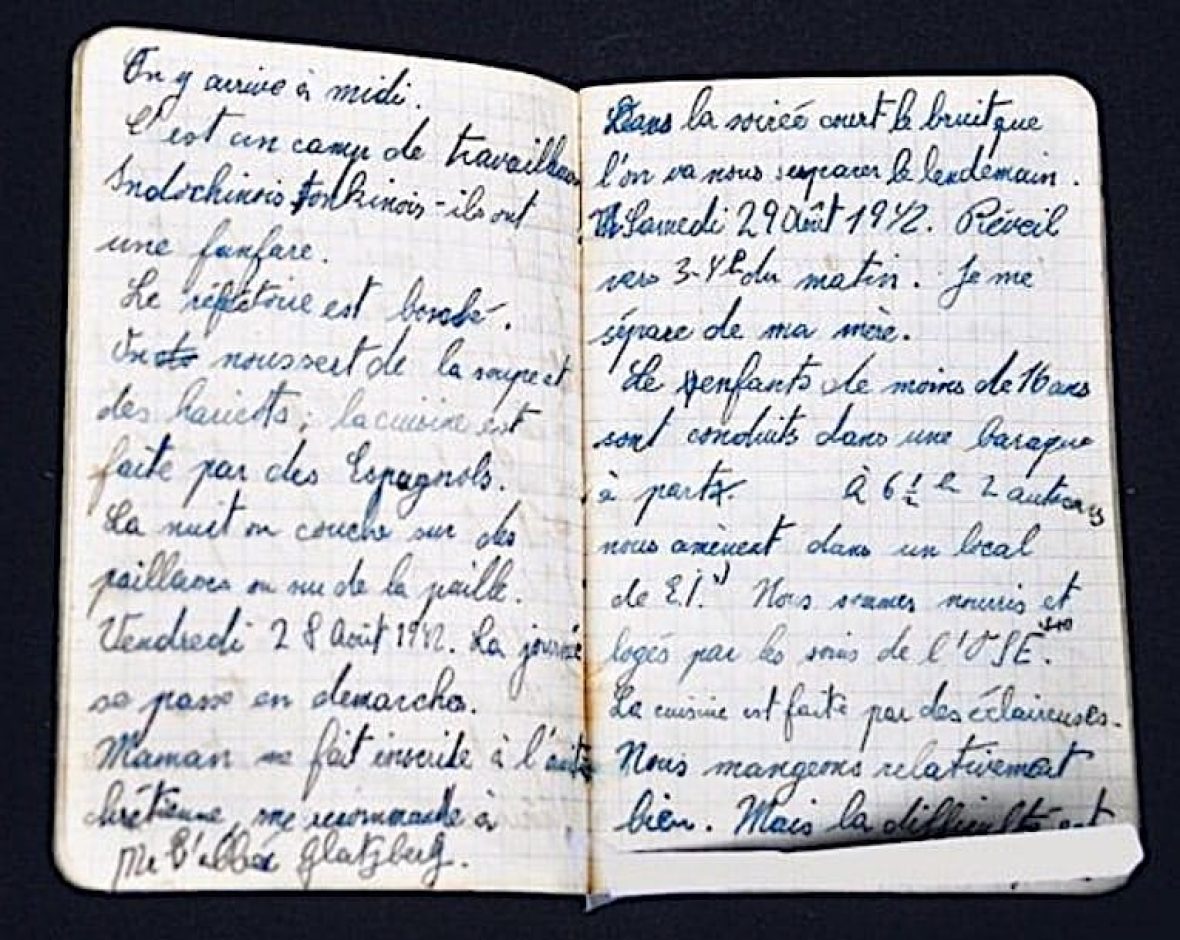 On y arrive à midi.
C'est un camp de travailleurs
Indochinois Tonkinois - ils ont
une fanfare.
Le réfectoire est bombé.
On nous sert de la soupe et
des haricots ; la cuisine est
faite par des Espagnols.
La nuit on couche sur des
paillasses ou sur de la paille.
Vendredi 28 Août 1942. La journée
se passe en démarches.
Maman me fait inscrire à l'
chrétienne, me recommande à
Mr l'abbé Glatzberg.
Dans la soirée court le bruit que
l'on va nous séparer le lendemain.
Samedi 29 Août 1942. Réveil
vers 3-4h du matin. Je me
sépare de ma mère.
Le enfants de moins de 16 ans
sont conduits dans une baraque
à part. À 6 1/2 h 2 autocars
nous amènent dans un local
de E.I. Nous sommes nourris et
logés par les soins de l'OSE.
La cuisine est faite par des éclaireuses.
Nous mangeons relativement
bien. Mais la difficulté est